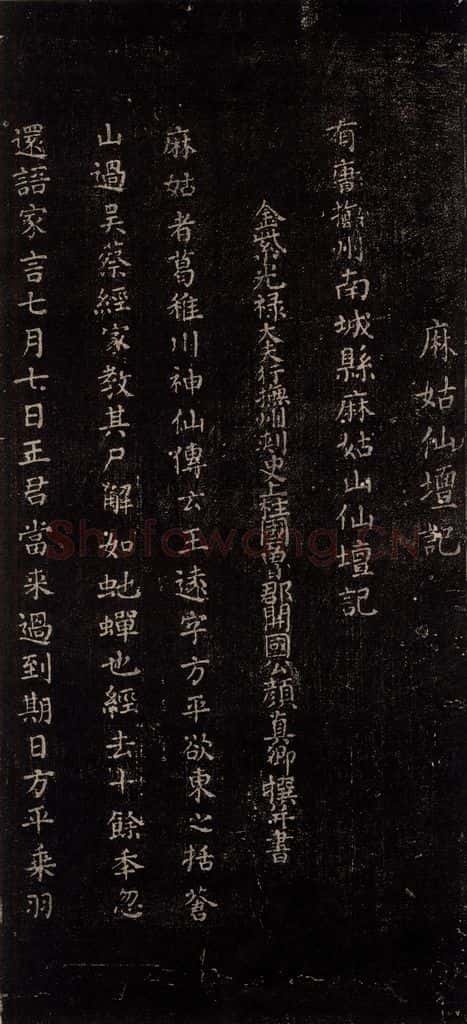 麻姑仙壇記
有唐撫州南城縣麻姑山仙壇記
金紫光禄大夫行撫州刺史上柱國魯郡開國公顏真卿撰并書
麻姑者葛稚川神仙傳云王遠字方平欲東之括蒼
山過吳蔡經家教其尸解如虵蟬也經去十餘年忽
還語家言七月七日王君當来過到期日方平乘羽
Shufawang.CN